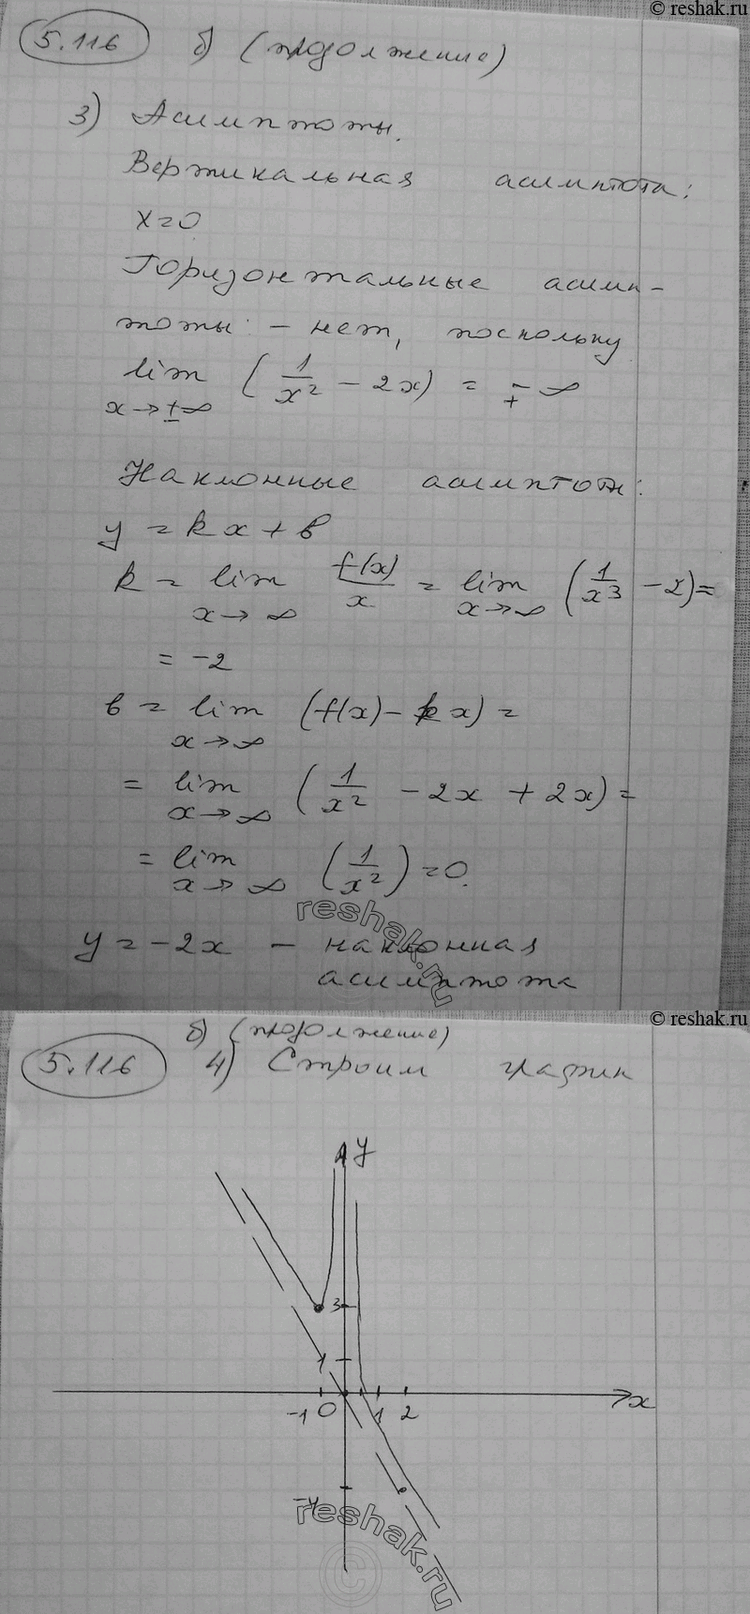 © reshak.ru
5.116 б) (продолжение)
3) Асимптоты.
Вертикальная асимптота:
x=0
Горизонтальные асимп-
тоты: - нет, поскольку
lim (1/x² - 2x) = ∓ ∞
x→±∞
Наклонные асимптоты:
y = kx + b
k = lim f(x)/x = lim (1/x³ - 2) =
x→∞ x→∞
= -2
b = lim (f(x) - kx) =
x→∞
= lim (1/x² - 2x + 2x) =
x→∞
= lim (1/x²) = 0.
x→∞
reshak.ru
y = -2x - наклонная
асимптота
© reshak.ru
б) (продолжение)
5.116 4) Строим график
y
3
1
-1 0 1 2 x
-4
reshak.ru
©